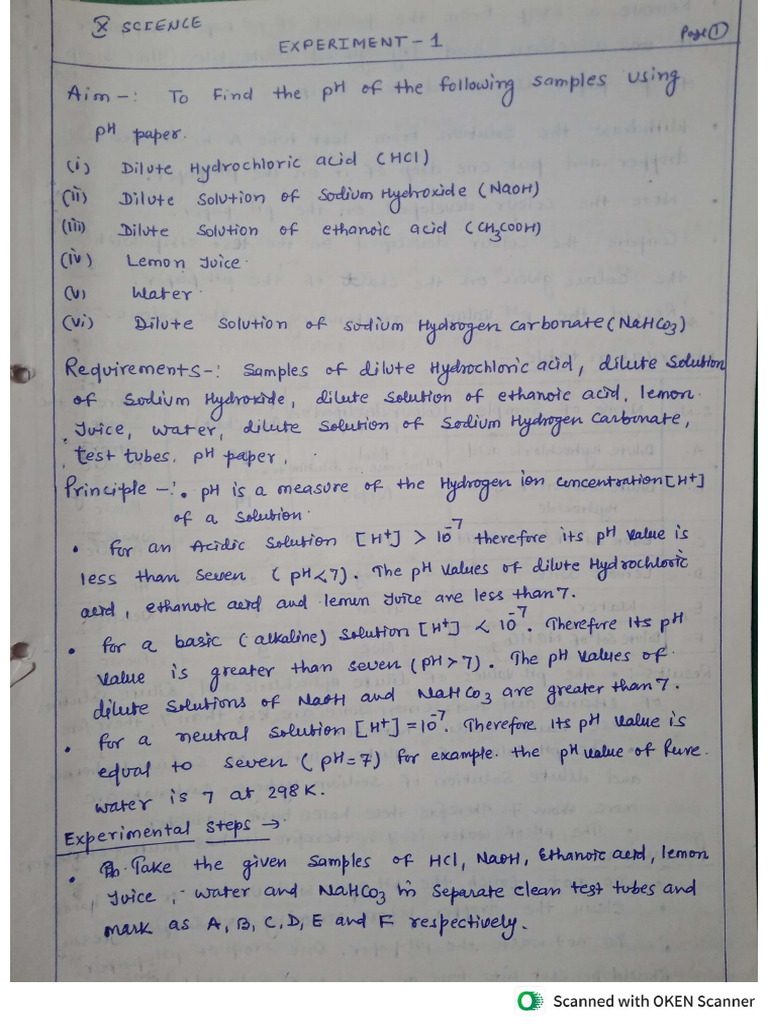 X SCIENCE
EXPERIMENT - 1
Page ①
Aim -: To Find the pH of the following samples using
pH paper.
(i) Dilute Hydrochloric acid (HCl)
(ii) Dilute Solution of Sodium Hydroxide (NaOH)
(iii) Dilute Solution of ethanoic acid (CH₃COOH)
(iv) Lemon Juice.
(v) Water.
(vi) Dilute Solution of sodium Hydrogen Carbonate (NaHCO₃)
Requirements -: Samples of dilute Hydrochloric acid, dilute Solution
of Sodium Hydroxide, dilute Solution of ethanoic acid, lemon.
Juice, water, dilute Solution of Sodium Hydrogen Carbonate,
test tubes, pH paper.
Principle -: • pH is a measure of the Hydrogen ion concentration [H⁺]
of a Solution.
• For an Acidic Solution [H⁺] > 10⁻⁷ therefore its pH value is
less than Seven (pH<7). The pH values of dilute Hydrochloric
acid, ethanoic acid and lemon Juice are less than 7.
• For a basic (alkaline) Solution [H⁺] < 10⁻⁷. Therefore its pH
value is greater than seven (pH > 7). The pH values of.
dilute Solutions of NaOH and NaHCO₃ are greater than 7.
• For a neutral Solution [H⁺] = 10⁻⁷. Therefore its pH value is
equal to seven (pH = 7) for example. the pH value of Pure.
water is 7 at 298 K.
Experimental Steps →
• Take the given Samples of HCl, NaOH, Ethanoic acid, lemon
Juice, water and NaHCO₃ in Separate clean test tubes and
mark as A, B, C, D, E and F respectively.
Scanned with OKEN Scanner